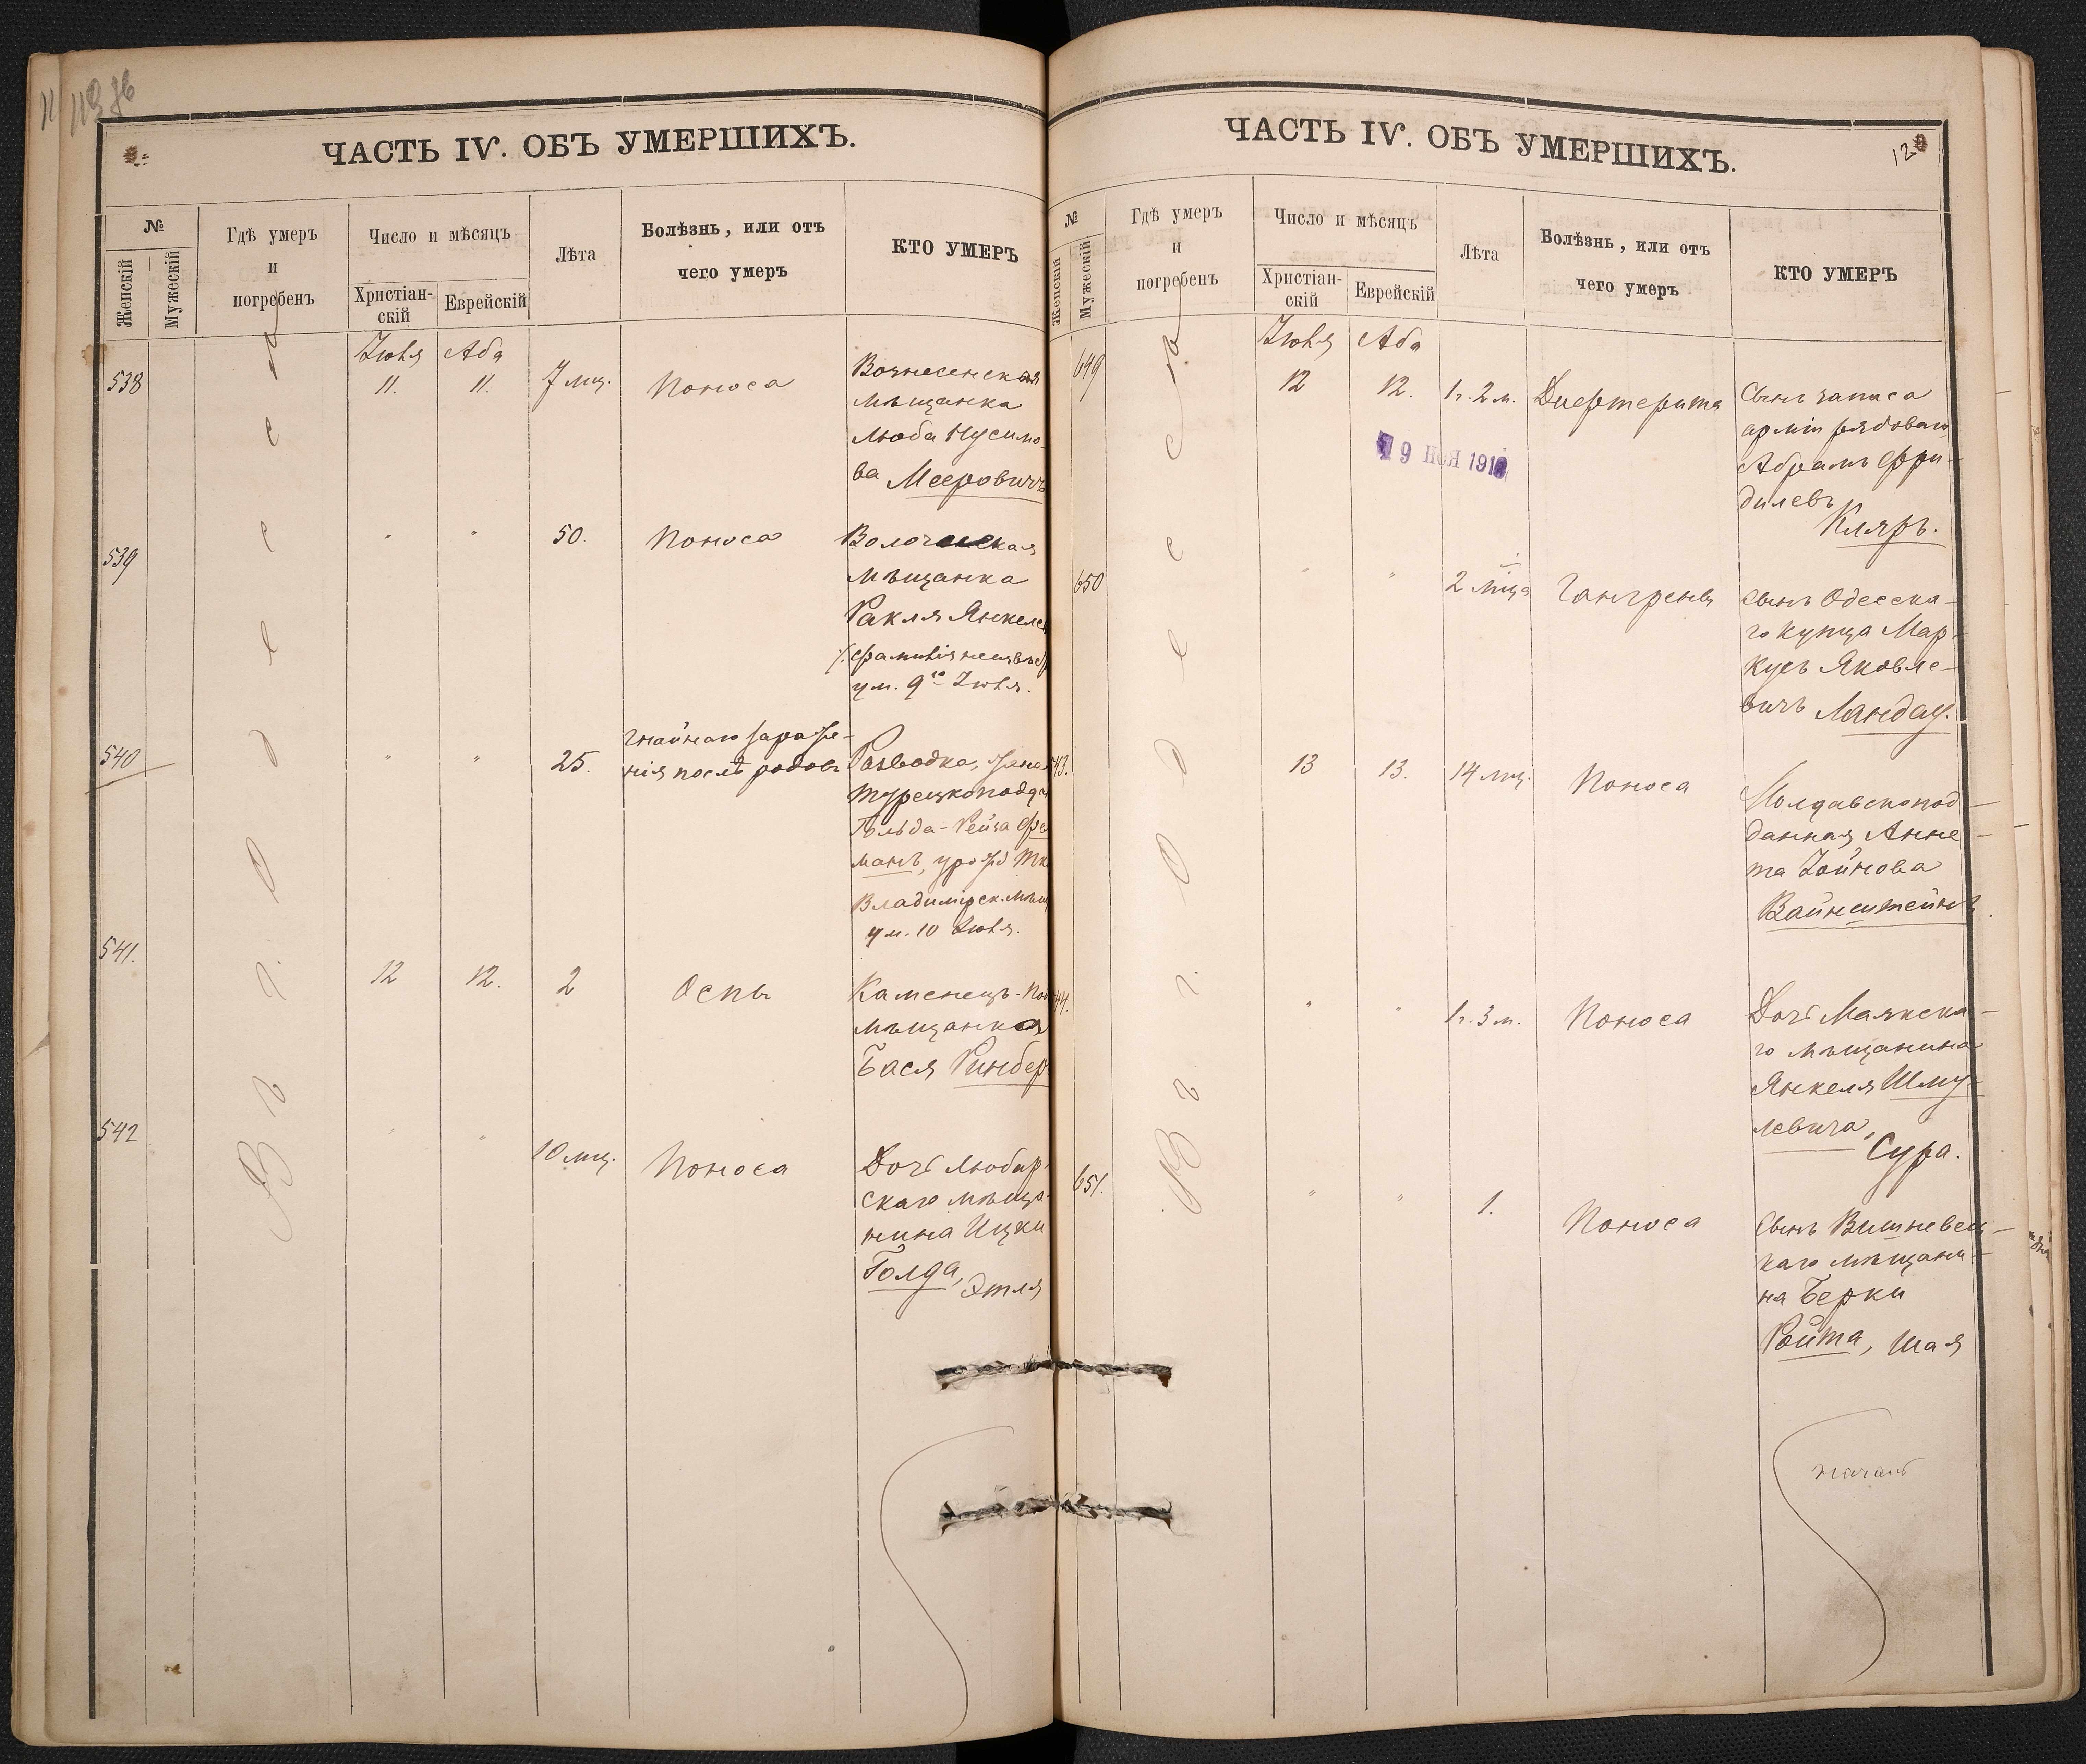 ЧАСТЬ IV. ОБЪ УМЕРШИХЪ.
№
Женскій
Мужескій
Гдѣ умеръ
и
погребенъ
Число и мѣсяцъ
Христіан-
скій
Еврейскій
Лѣта
Болѣзнь, или отъ
чего умеръ
КТО УМЕРЪ
Въ г. Одесса
Іюля
Аба
538
11.
11.
7 мц.
Поноса
Вознесенская
мѣщанка
Люба Нусимо-
ва Мееровичъ
539
"
"
50.
Поноса
мѣщанка
Рахля Янкеле
ум. 9го Іюля.
540
"
"
25.
гнойнаго зараже-
нія послѣ родовъ
Разводка, жена
турецкоподд
Гольда-Рейза Фе
манъ, урожд Тк
Владимірск. мѣщ
ум. 10 Іюля.
541.
12
12.
2
Оспы
Каменецъ-Под
мѣщанка
Бася Гинбер
542
"
"
10 мц.
Поноса
Дочь Любар-
скаго мѣща-
нина Ицки
Голда, Этля
ЧАСТЬ IV. ОБЪ УМЕРШИХЪ.
120
№
Женскій
Мужескій
Гдѣ умеръ
и
погребенъ
Число и мѣсяцъ
Христіан-
скій
Еврейскій
Лѣта
Болѣзнь, или отъ
чего умеръ
КТО УМЕРЪ
Въ г. Одесса
Іюля
Аба
649
12
12.
1 г. 2 м.
Дифтерита
Сынъ запаса
арміи рядоваго
Абрамъ Фри-
дилевъ
Кляръ.
9 НОЯ 191
650
"
"
2 мца
Гангрены
Сынъ Одесска-
го купца Мар-
кусъ Яковле-
вичъ Ландау.
43.
13
13.
14 мц.
Поноса
Молдавскопод-
данная Анне-
та Іойнова
Вайнштейнъ
44.
"
"
1 г. 3 м.
Поноса
Дочь Маякска-
го мѣщанина
Янкеля Шму-
левича,
Сура.
651.
"
"
1.
Поноса
Сынъ Вишневец-
каго мѣщани-
на Берки
Ройта, Шая